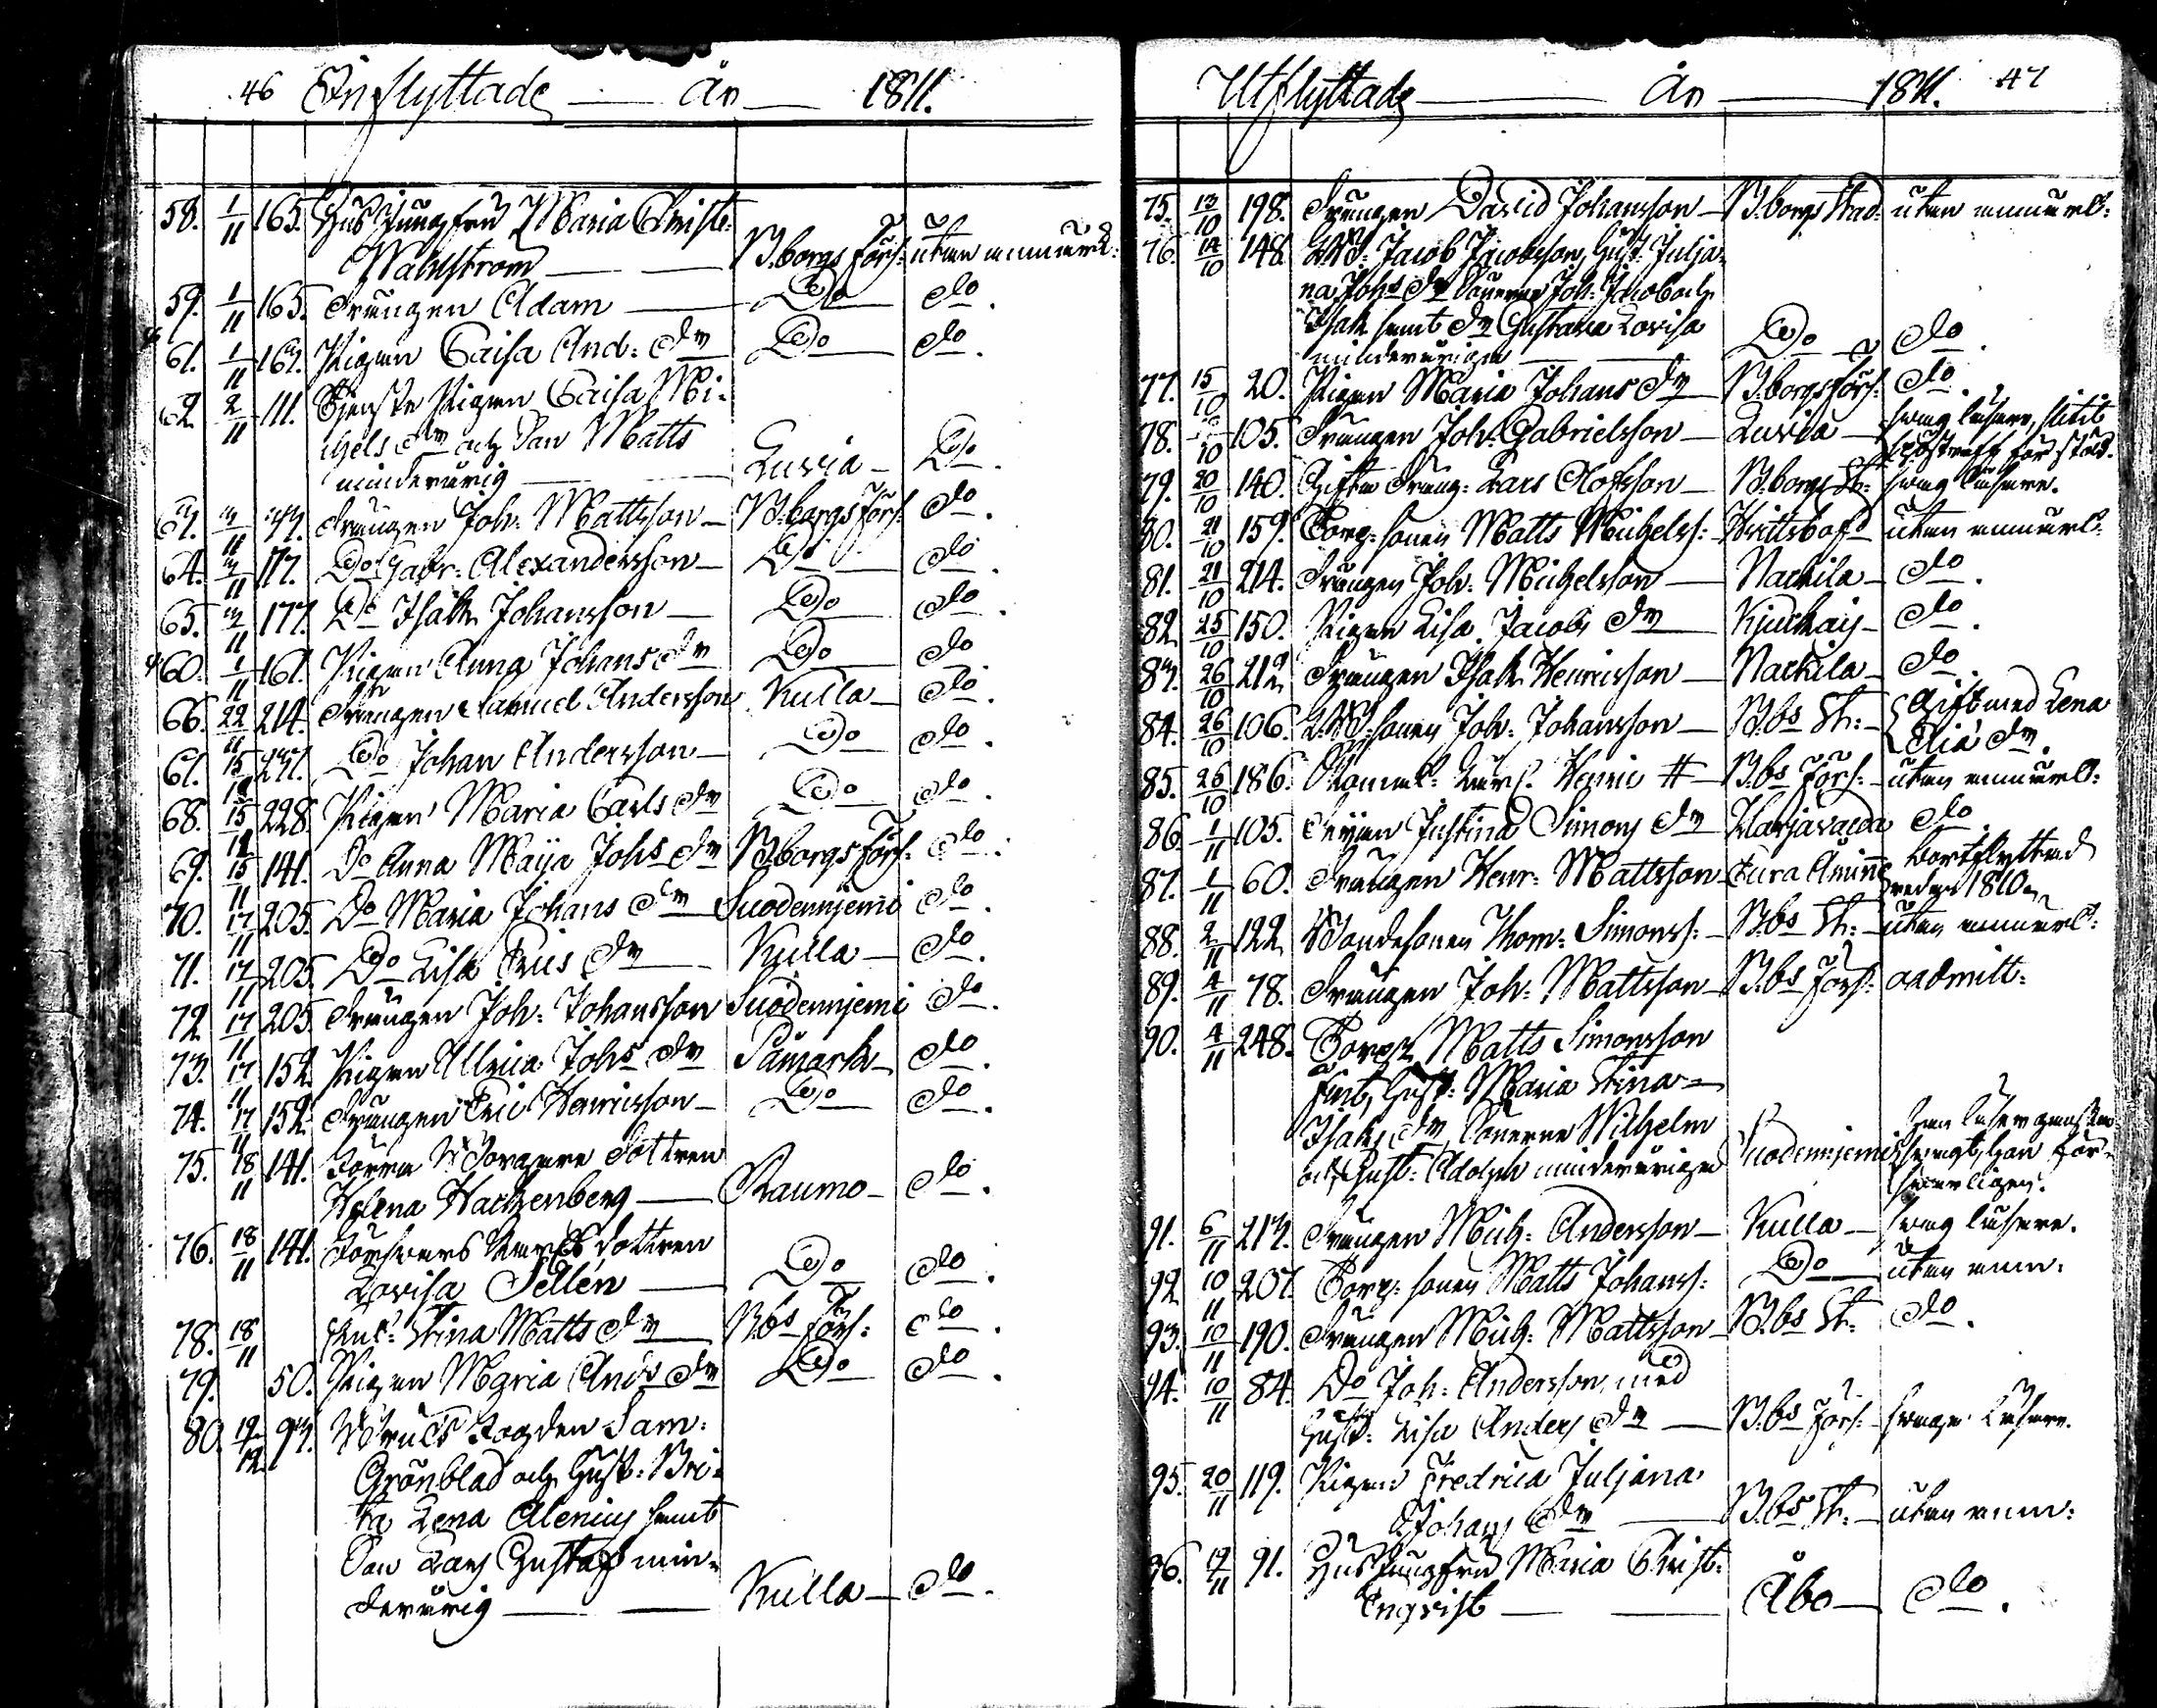 46 Inflyttade År 1811.
58. 1/11 165. Hus Jungfru Maria Christ:
Wahlström B.borgs förs: utan anmärk:
59. 1/11 165. Drängen Adam Do do.
61. 1/11 167. Pigan Caisa And: dr Do do.
62. 2/11 111. Tjenste Pigan Caisa Mi-
chels dr och Son Matts
minderårig Luvia Do.
Drängen Joh: Mattsson B:borgs förs: do.
64. 3/11 117. Do Gabr: Alexandersson Do do.
65. 3/11 177. Do Isak Johansson Do do.
60. 1/11 161. Pigan Anna Johans dr Do do
66. 22/11 214. Drängen Samuel Andersson Kulla do.
67. 15/11 Do Johan Andersson Do do.
68. 15/11 228. Pigan Maria Carls dr Do do.
69. 15/11 141. Do Anna Maija Johs dr B:borgs förs: do.
70. 17/11 205. Do Maria Johans dr Suodenniemi do.
71. 17/11 205. Do Lisa Eriks dr Kulla do.
72. 17/11 205. Drängen Joh: Johansson Suodenniemi do.
73. 17/11 152. Pigan Ullrica Johs dr Påmark do.
74. 17/11 152. Drängen Eric Henricsson Do do.
75. 18/11 141. Förra Borgare dottren
Helena Hachzenberg Raumo do.
76. 18/11 141. dottren
Lovisa Sellén Do do.
78. 18/11 Enk: Stina Matts dr B:bs förs: do.
79. 50. Pigan Maria Ands dr Do do.
80. 12/12 93. Bruks Fogden Sam:
Grönblad och Hust: Bri-
ta Lena Alenius samt
Son Lars Gustaf min-
derårig Kulla do.
Utflyttade År 1811. 47
75. 13/10 198. Drängen David Johansson B:borgs Stad: utan anmärk:
76. 14/10 148. Jacob Jacobsson, Hust: Julja-
na Johs dr Sönerne Joh: Jacob och
Isak samt dr Gustava Lovisa
minderåriga Do do.
77. 15/10 20. Pigan Maria Johans dr B:borgs förs: do.
78. 105. Drängen Joh: Gabrielsson Luvia svag läsare,
för stöld.
79. 20/10 140. Gifta Dräng: Lars Olofsson B:borgs St: svag läsare.
80. 21/10 159. Torp: sonen Matts Michelss: Hvittisbofd utan anmärk:
81. 21/10 214. Drängen Joh: Michelsson Nackila do.
82. 25/10 150. Pigan Lisa Jacobs dr Kjuckais do.
83. 26/10 212. Drängen Isak Henricsson Nackila do.
84. 26/10 106. sonen Joh: Johansson B:bs St: Gift med Lena
dr.
85. 26/10 186. Henric # B:bs förs: utan anmärk:
86. 1/11 105. Pigan Justina Simons dr Harjavalda do.
87. 1/11 60. Drängen Henr: Mattsson Eura Åminne bortflyttad
redan 1810.
88. 2/11 122. Bondesonen Thom: Simonss: B:bs St: utan anmärk:
89. 4/11 78. Drängen Joh: Mattsson B:bs förs: oadmitt:
90. 4/11 248. Torp: Matts Simonsson
Hust: Maria Stina
Isaks dr, Sönerne Wilhelm
och Gust: Adolph minderåriga Suodenniemi
91. 6/11 213. Drängen Mich: Andersson Kulla svag läsare.
92. 10/11 207. Torp: sonen Matts Johanss: Do utan anm:
93. 10/11 190. Drängen Mich: Mattsson B:bs St: do.
94. 10/11 84. Do Joh: Andersson, med
Hust: Lisa Anders dr B:bs förs: svage Läsare.
95. 20/11 119. Pigan Fredrica Juljana
Johans dr B:bs St: utan anm:
96. 91. Hus Jungfru Maria Christ:
Enqvist Åbo do.